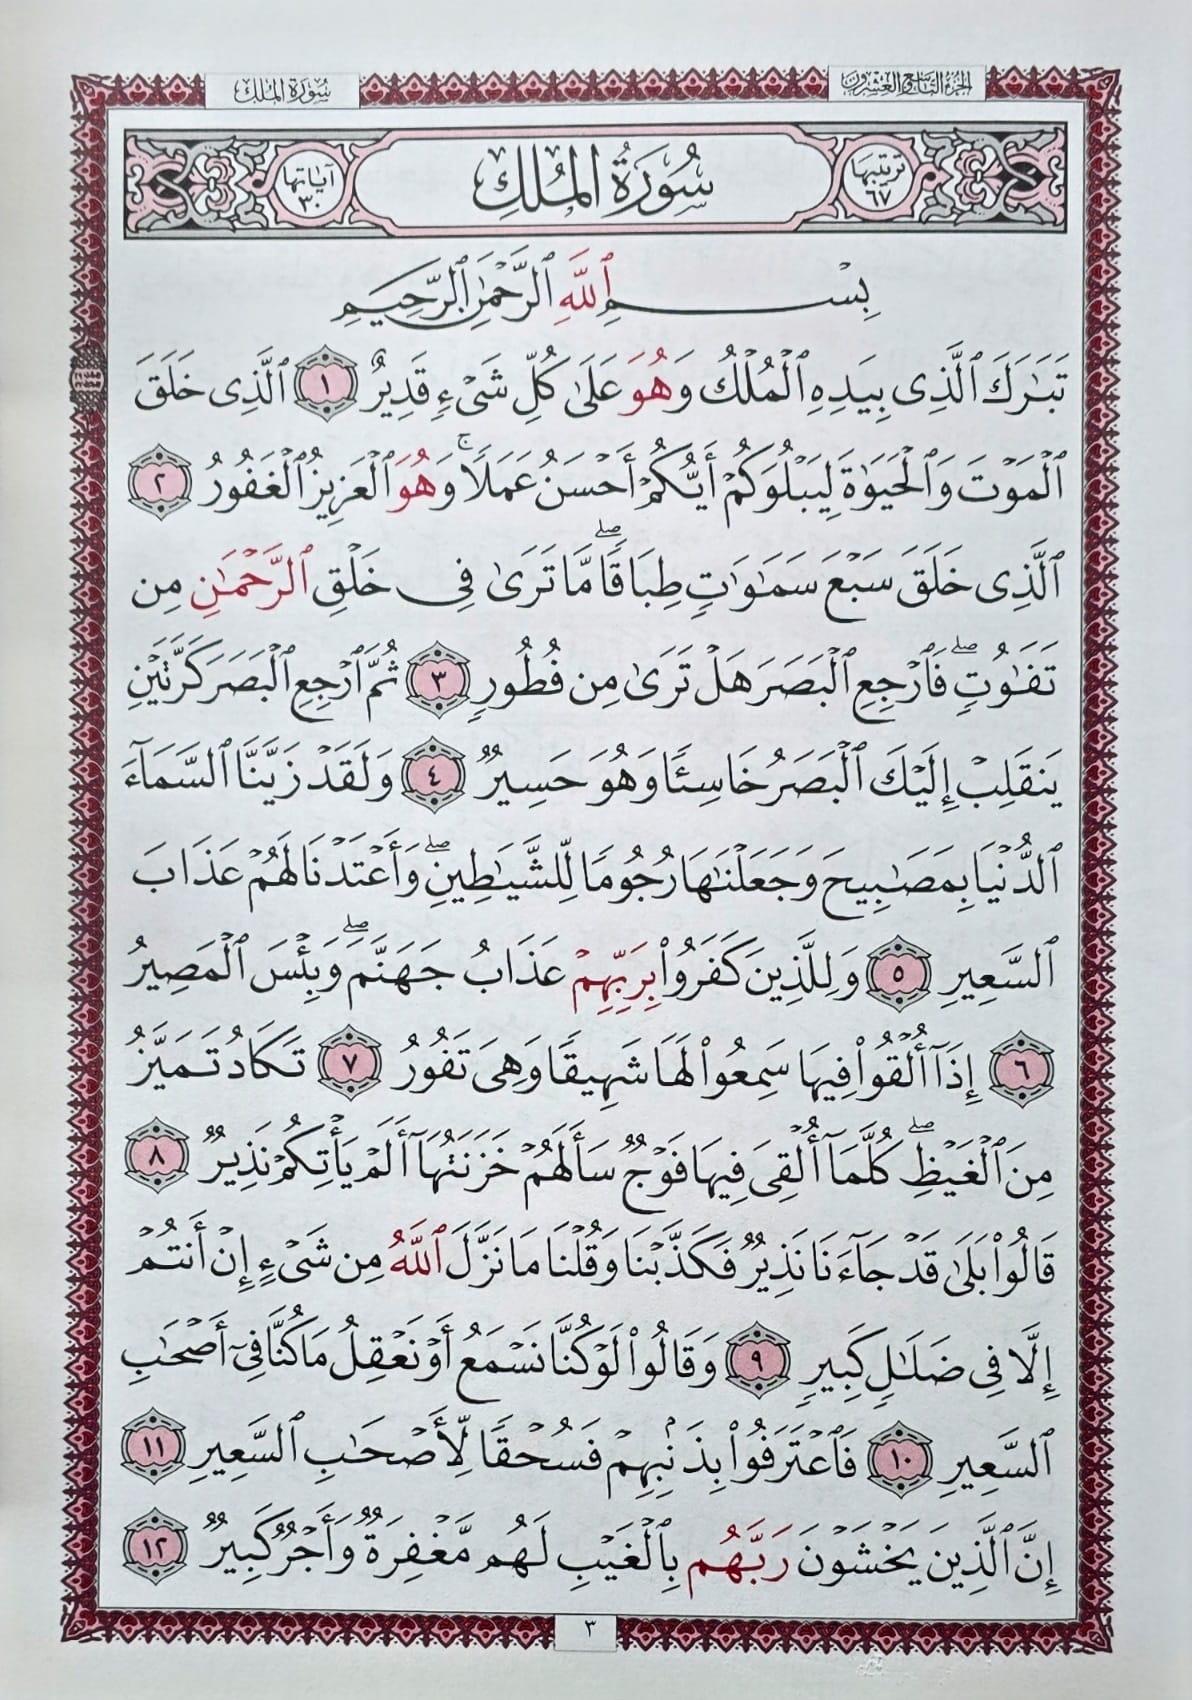 الجزء التاسع والعشرون
سورة الملك
ترتيبها ٦٧
سُورَةُ المُلكِ
آياتها ٣٠
بِسْمِ ٱللَّهِ ٱلرَّحْمَٰنِ ٱلرَّحِيمِ
تَبَٰرَكَ ٱلَّذِى بِيَدِهِ ٱلْمُلْكُ وَهُوَ عَلَىٰ كُلِّ شَىْءٍ قَدِيرٌ ١ ٱلَّذِى خَلَقَ
ٱلْمَوْتَ وَٱلْحَيَوٰةَ لِيَبْلُوَكُمْ أَيُّكُمْ أَحْسَنُ عَمَلًا ۚ وَهُوَ ٱلْعَزِيزُ ٱلْغَفُورُ ٢
ٱلَّذِى خَلَقَ سَبْعَ سَمَٰوَٰتٍ طِبَاقًا ۖ مَّا تَرَىٰ فِى خَلْقِ ٱلرَّحْمَٰنِ مِن
تَفَٰوُتٍ ۖ فَٱرْجِعِ ٱلْبَصَرَ هَلْ تَرَىٰ مِن فُطُورٍ ٣ ثُمَّ ٱرْجِعِ ٱلْبَصَرَ كَرَّتَيْنِ
يَنقَلِبْ إِلَيْكَ ٱلْبَصَرُ خَاسِئًا وَهُوَ حَسِيرٌ ٤ وَلَقَدْ زَيَّنَّا ٱلسَّمَآءَ
ٱلدُّنْيَا بِمَصَٰبِيحَ وَجَعَلْنَٰهَا رُجُومًا لِّلشَّيَٰطِينِ ۖ وَأَعْتَدْنَا لَهُمْ عَذَابَ
ٱلسَّعِيرِ ٥ وَلِلَّذِينَ كَفَرُوا۟ بِرَبِّهِمْ عَذَابُ جَهَنَّمَ ۖ وَبِئْسَ ٱلْمَصِيرُ
٦ إِذَآ أُلْقُوا۟ فِيهَا سَمِعُوا۟ لَهَا شَهِيقًا وَهِىَ تَفُورُ ٧ تَكَادُ تَمَيَّزُ
مِنَ ٱلْغَيْظِ ۖ كُلَّمَآ أُلْقِىَ فِيهَا فَوْجٌ سَأَلَهُمْ خَزَنَتُهَآ أَلَمْ يَأْتِكُمْ نَذِيرٌ ٨
قَالُوا۟ بَلَىٰ قَدْ جَآءَنَا نَذِيرٌ فَكَذَّبْنَا وَقُلْنَا مَا نَزَّلَ ٱللَّهُ مِن شَىْءٍ إِنْ أَنتُمْ
إِلَّا فِى ضَلَٰلٍ كَبِيرٍ ٩ وَقَالُوا۟ لَوْ كُنَّا نَسْمَعُ أَوْ نَعْقِلُ مَا كُنَّا فِىٓ أَصْحَٰبِ
ٱلسَّعِيرِ ١٠ فَٱعْتَرَفُوا۟ بِذَنۢبِهِمْ فَسُحْقًا لِّأَصْحَٰبِ ٱلسَّعِيرِ ١١
إِنَّ ٱلَّذِينَ يَخْشَوْنَ رَبَّهُم بِٱلْغَيْبِ لَهُم مَّغْفِرَةٌ وَأَجْرٌ كَبِيرٌ ١٢
٣